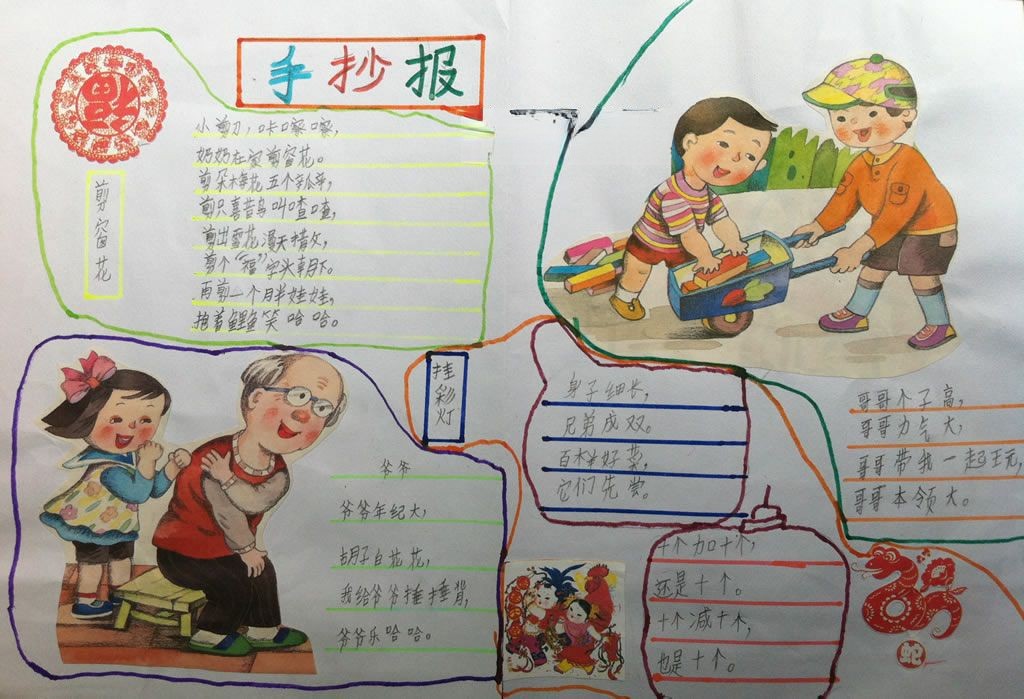 手抄报
福
剪窗花
小剪刀，咔嚓嚓，
奶奶在家剪窗花。
剪朵梅花五个瓣，
剪只喜鹊叫喳喳，
剪出雪花漫天撒，
剪个“福”字头朝下。
再剪一个胖娃娃，
抱着鲤鱼笑哈哈。
挂彩灯
爷爷
爷爷年纪大，
胡子白花花，
我给爷爷捶捶背，
爷爷乐哈哈。
身子细长，
兄弟成双。
百样好菜，
它们先尝。
哥哥个子高，
哥哥力气大，
哥哥带我一起玩，
哥哥本领大。
十个加十个，
还是十个。
十个减十个，
也是十个。
蛇